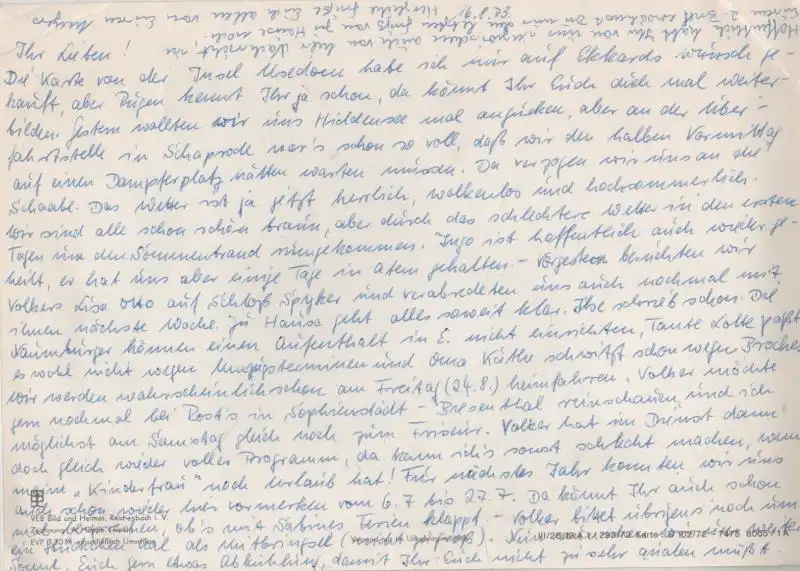 16.8.73
Ihr Lieben!
Die Karte von der Insel Usedom habe ich mir auf Ekkards Wunsch ge-
kauft, aber Rügen kennt Ihr ja schon, da könnt Ihr Euch auch mal weiter-
bilden. Gestern wollten wir uns Hiddensee mal angucken, aber an der Über-
fahrtstelle in Schaprode war's schon so voll, daß wir den halben Vormittag
auf einen Dampferplatz hätten warten müssen. Da verzogen wir uns an die
Schaabe. Das Wetter ist ja jetzt herrlich, wolkenlos und hochsommerlich.
Wir sind alle schon schön braun, aber durch das schlechtere Wetter in den ersten
Tagen um den Sonnenbrand rumgekommen. Ingo ist hoffentlich auch wieder ge-
heilt, er hat uns aber einige Tage in Atem gehalten. - Vorgestern besuchten wir
Volkers Lisa Otto auf Schloß Spyker und verabredeten uns auch nochmal mit
ihnen nächste Woche. Zu Hause geht alles soweit klar. Ilse schrieb schon. Die
Naumburger können einen Aufenthalt in E. nicht einrichten, Tante Lotte paßt
es wohl nicht wegen Umzugsterminen und Oma Käthe schwitzt schon wegen
Wir werden wahrscheinlich schon am Freitag (24.8.) heimfahren. Volker möchte
gern nochmal bei Rost's in Sophienstädt - Biesenthal reinschauen und ich
möglichst am Samstag gleich noch zum Friseur. Volker hat im Dienst dann
doch gleich wieder volles Programm, da kann ich's sonst schlecht machen, wenn
meine „Kinderfrau" noch Urlaub hat! Für nächstes Jahr konnten wir uns
auch schon wieder hier vormerken vom 6.7. bis 27.7. Da könnt Ihr auch schon
ob's mit Sabines Ferien klappt - Volker bittet übrigens noch um
ein als Mitbringsel
Sonne, Euch gern etwas Abkühlung, damit Ihr Euch nicht zu sehr quälen müßt.
VEB Bild und Heimat, Reichenbach i. V.
EVP 0,70 M einschließlich Umschlag